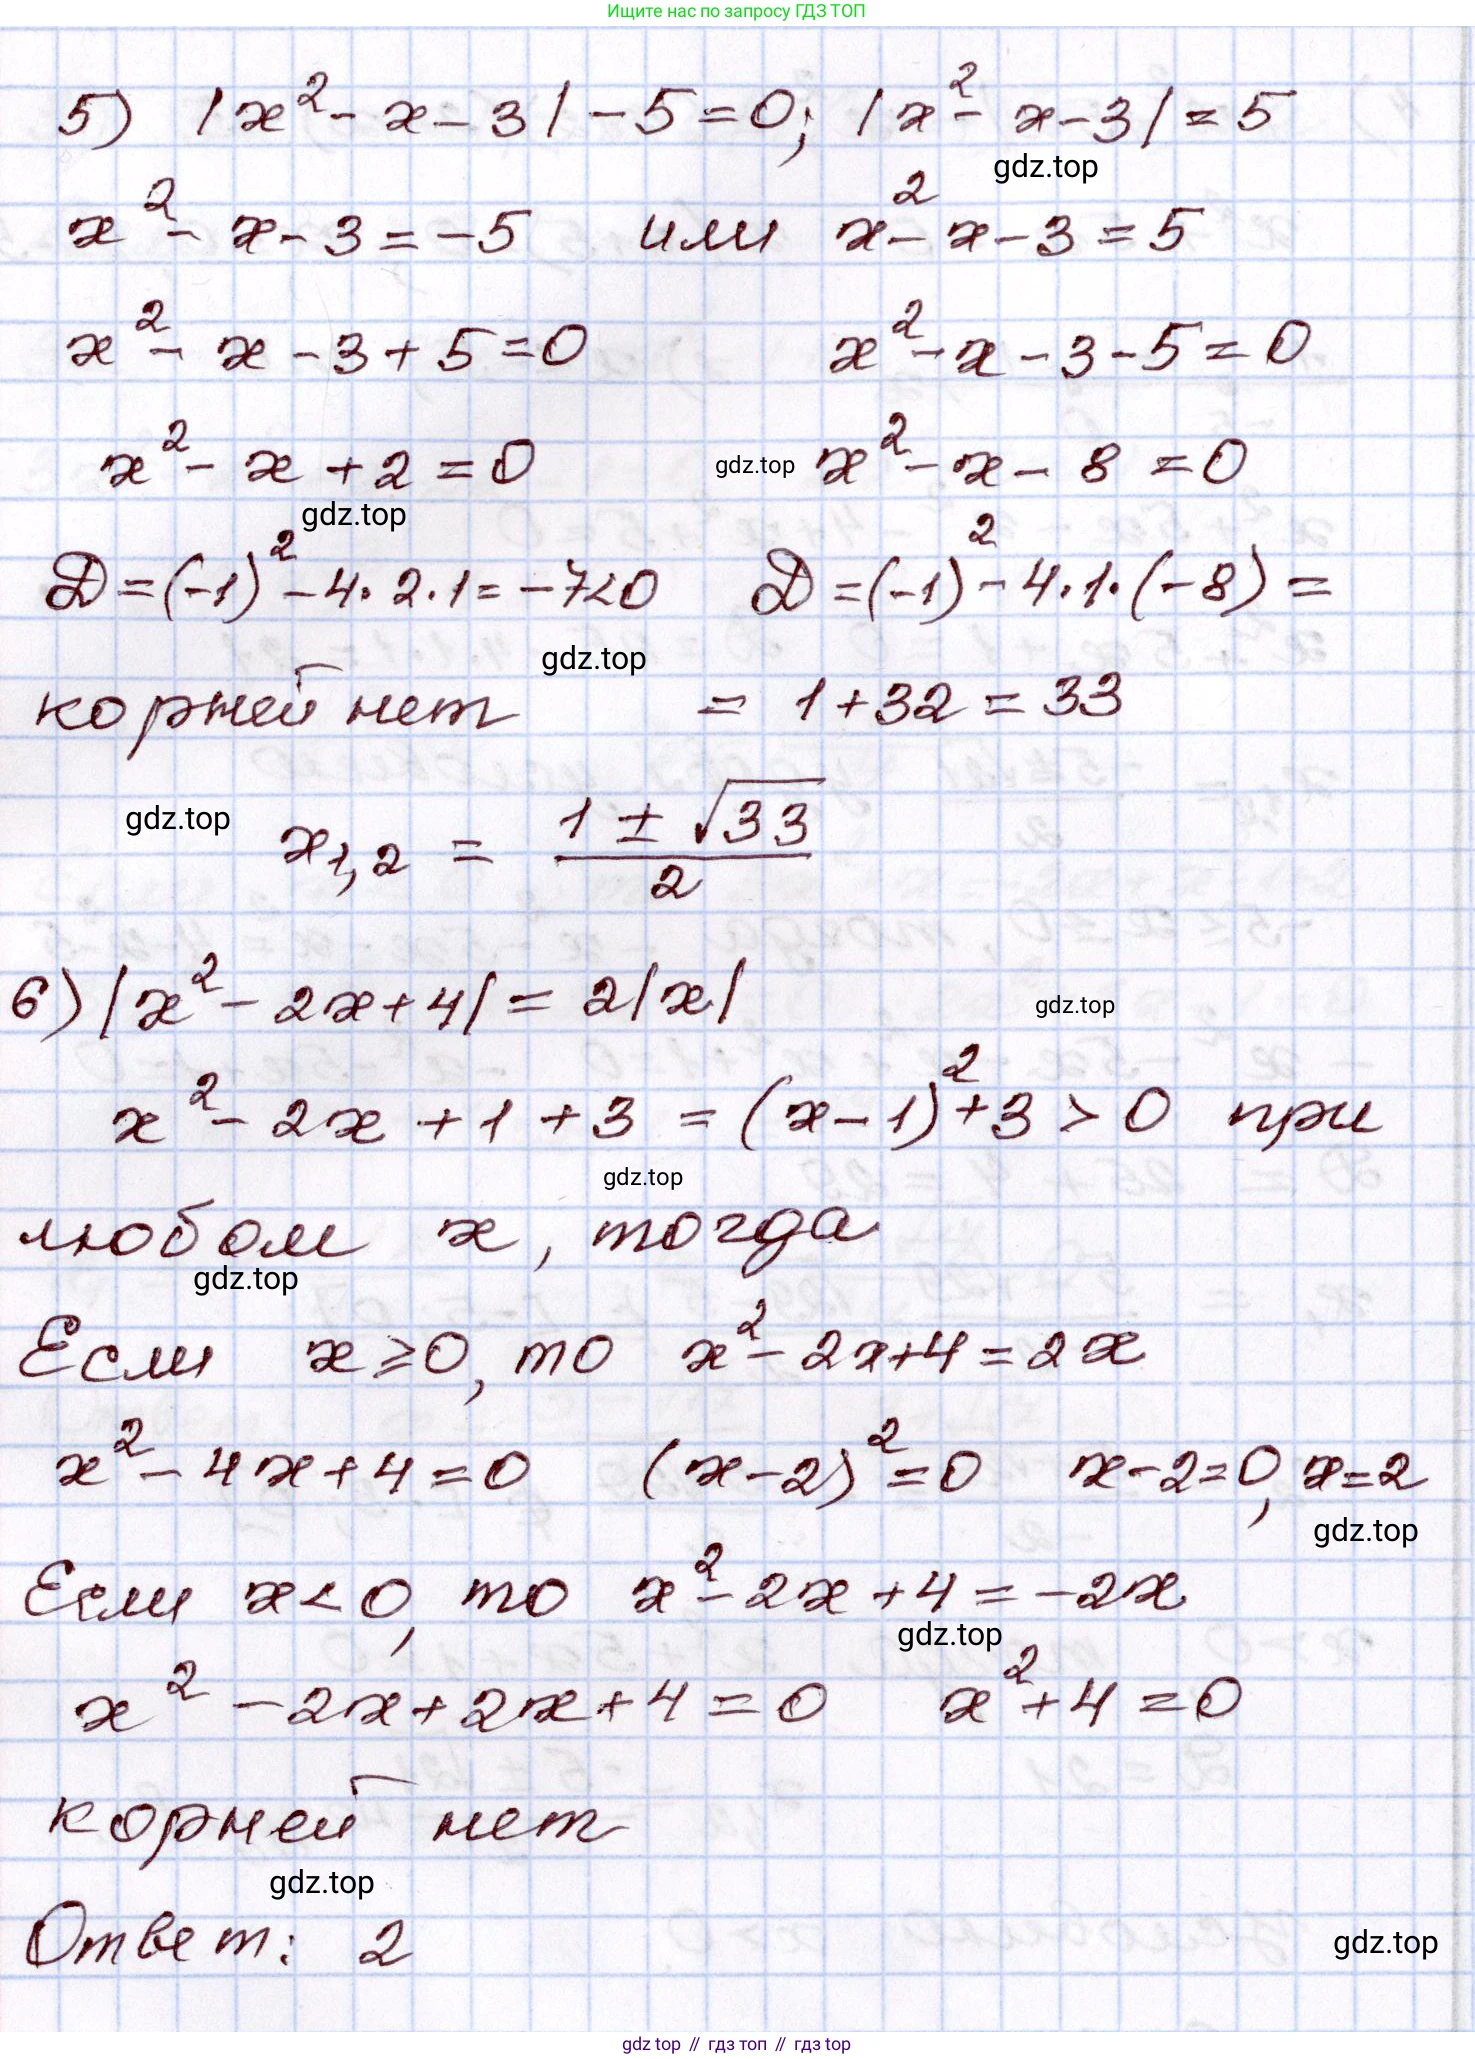 Ищите нас по запросу ГДЗ ТОП
5) |x² - x - 3| - 5 = 0; |x² - x - 3| = 5
gdz.top
x² - x - 3 = -5 или x² - x - 3 = 5
x² - x - 3 + 5 = 0 x² - x - 3 - 5 = 0
x² - x + 2 = 0 gdz.top x² - x - 8 = 0
gdz.top
D = (-1)² - 4·2·1 = -7<0 D = (-1)² - 4·1·(-8) =
gdz.top
корней нет = 1 + 32 = 33
gdz.top
x₁,₂ = (1 ± √33)/2
6) |x² - 2x + 4| = 2|x|
gdz.top
x² - 2x + 1 + 3 = (x - 1)² + 3 > 0 при
gdz.top
любом x, тогда
gdz.top
Если x ≥ 0, то x² - 2x + 4 = 2x
x² - 4x + 4 = 0 (x - 2)² = 0 x - 2 = 0, x = 2
gdz.top
Если x < 0, то x² - 2x + 4 = -2x
gdz.top
x² - 2x + 2x + 4 = 0 x² + 4 = 0
корней нет
gdz.top
Ответ: 2
gdz.top
gdz top // гдз топ // гдз top